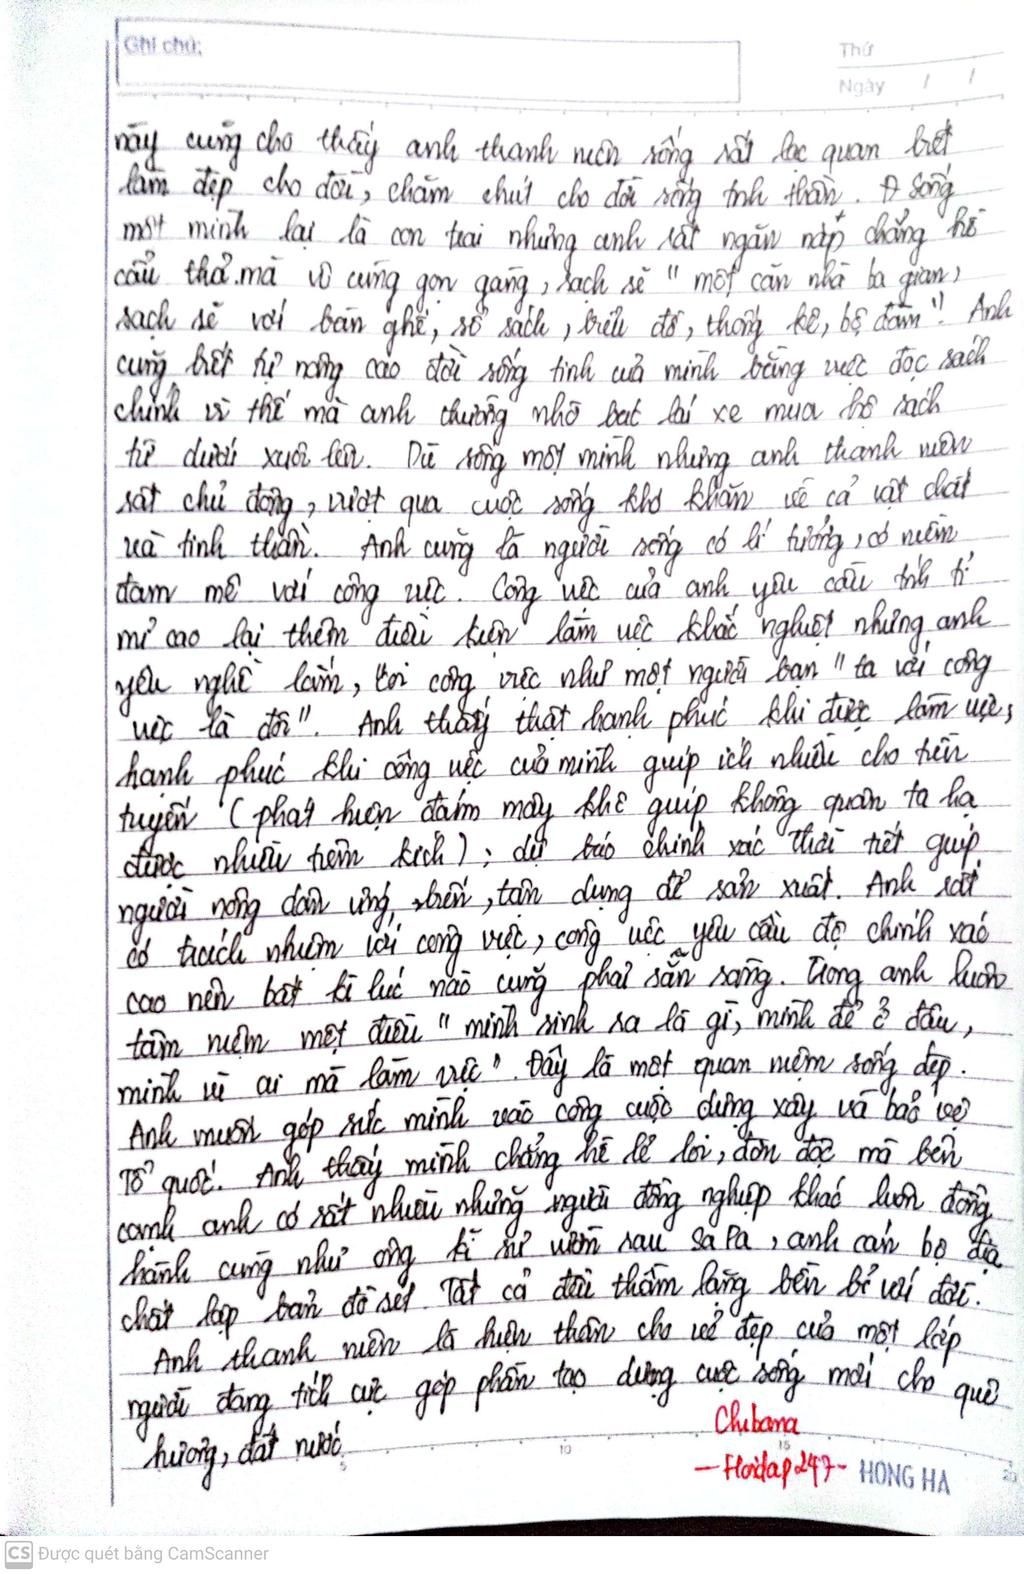 Ghi chú:
Thứ
Ngày / /
này cũng cho thấy anh thanh niên sống rất lạc quan biết
làm đẹp cho đời, chăm chút cho đời sống tinh thần. Ở Sống
một mình lại là con trai nhưng anh rất ngăn nắp chẳng hề
cẩu thả mà vô cùng gọn gàng, sạch sẽ " một căn nhà ba gian,
sạch sẽ với bàn ghế, sổ sách, biểu đồ, thống kê, bộ đàm". Anh
cũng biết tự nâng cao đời sống tinh của mình bằng việc đọc sách
chính vì thế mà anh thường nhờ bác lái xe mua hộ sách
từ dưới xuôi lên. Dù sống một mình nhưng anh thanh niên
rất chủ động, vượt qua cuộc sống khó khăn về cả vật chất
và tinh thần. Anh cũng là người sống có lí tưởng, có niềm
đam mê với công việc. Công việc của anh yêu cầu tính tỉ
mỉ cao lại thêm điều kiện làm việc khắc nghiệt nhưng anh
yêu nghề lắm, coi công việc như một người bạn " ta với công
việc là đôi". Anh thấy thật hạnh phúc khi được làm việc,
hạnh phúc khi công việc của mình giúp ích nhiều cho tiền
tuyến (phát hiện đám mây khô giúp không quân ta hạ
được nhiều tiêm kích); dự báo chính xác thời tiết giúp
người nông dân ứng biến, tận dụng để sản xuất. Anh rất
có trách nhiệm với công việc, công việc yêu cầu độ chính xác
cao nên bất kì lúc nào cũng phải sẵn sàng. Trong anh luôn
tâm niệm một điều " mình sinh ra là gì, mình đẻ ở đâu,
mình vì ai mà làm việc". Đây là một quan niệm sống đẹp.
Anh muốn góp sức mình vào công cuộc dựng xây và bảo vệ
Tổ quốc. Anh thấy mình chẳng hề lẻ loi, đơn độc mà bên
cạnh anh có rất nhiều những người đồng nghiệp khác luôn đồng
hành cùng như ông kĩ sư vườn rau Sa Pa, anh cán bộ địa
chất lập bản đồ sét. Tất cả đều thầm lặng bền bỉ với đời.
Anh thanh niên là hiện thân cho vẻ đẹp của một lớp
người đang tích cực góp phần tạo dựng cuộc sống mới cho quê
hương, đất nước.
Chibana
- Hoidap247 -
HONG HA
5 10 15 20
CS Được quét bằng CamScanner